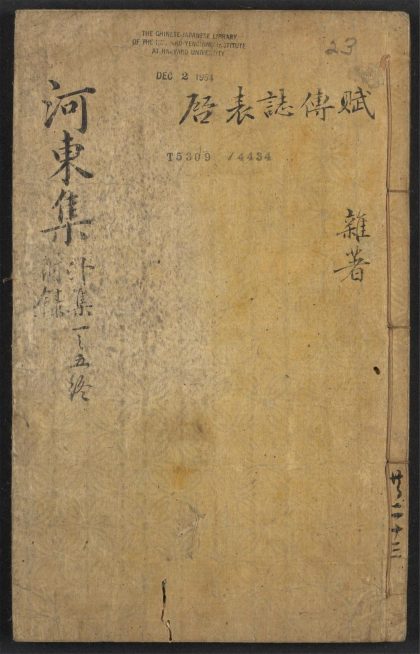 THE CHINESE-JAPANESE LIBRARY
OF THE HARVARD-YENCHING INSTITUTE
AT HARVARD UNIVERSITY
DEC 2 1954
23
賦傳誌表启
T5309 /4434
雜著
河東集
外集一之五終
附錄
共二十三